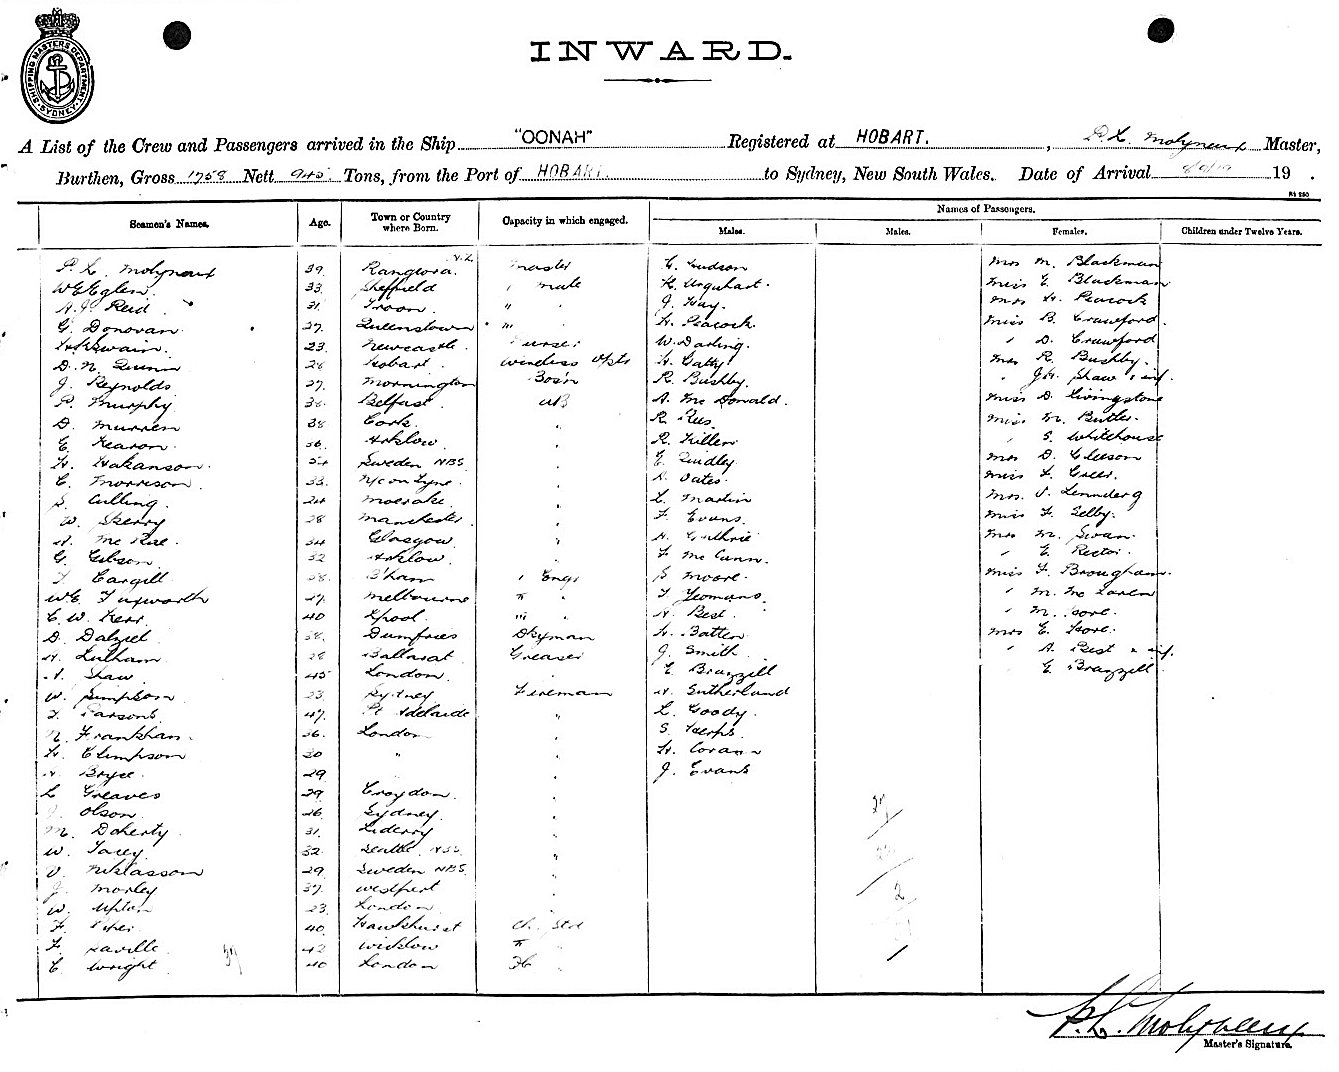 SHIPPING MASTERS DEPARTMENT SYDNEY
INWARD.
A List of the Crew and Passengers arrived in the Ship "OONAH" Registered at HOBART. , P.L. Molyneux Master,
Burthen, Gross 1758 Nett 945 Tons, from the Port of HOBART. to Sydney, New South Wales. Date of Arrival 19 .
Names of Passengers.
Seamen's Names. Age. Town or Country where Born. Capacity in which engaged. Males. Males. Females. Children under Twelve Years.
P. L. Molyneux 39. Rangiora. N.Z. Master C. Hudson Mrs M. Blackman
WE Eglen. 33. Sheffield " Mate H. Urquhart. Miss E Blackman
A.J. Reid. 31. Troon. " J. Hay. Mrs H. Peacock
G. Donovan. 27. Queenstown " H. Peacock. Miss B. Crawford.
Swain. 23. Newcastle. Purser W. Darling. " D. Crawford
D. N. Quinn 28 Hobart. Wireless Optr H. Gatty. Mrs R. Bushby.
J. Reynolds 27. Mornington Bosn R. Bushby. Shaw & inf.
P. Murphy Belfast. AB A. Mc Donald. Miss D. Livingstone
D. Murren 38 Cork. " R. Rees. Miss M. Butler.
E. Kearon. 56. Arklow. " R. Killen " S. Whitehouse
H. Hakanson. 54 Sweden NBS. " E. Lindley. Mrs D. Gleeson
C. Morrison. 33. N/c on Tyne. " A. Oates. Miss F. Greer.
S. Culling. 24 Moeraki. " L. Martin Mrs. Lenneberg
W. Skerry 28 Manchester. " F. Evans. Miss F. Selby.
Mc Rae. 34 Glasgow. " A. Guthrie Mrs M. Swan.
G. Gibson. 32 Arklow. " F. Mc Cann. " E. Rector.
Cargill 58. B'ham 1 Engr S. Moore. Miss F. Brougham.
WE. Tuxworth 27. Melbourne " Yeomans. " M. Mc Laren
C. W. Kerr. 40 L'pool. " A. Best. " M. Hore.
D. Dalziel. 38. Dumfries Dkyman H. Batten Mrs E. Hore.
Lulham. 28 Ballarat Greaser J. Smith. " A. Best & inf.
Shaw 45 London. " E. Brazzill E. Brazzill
W. Simpson. 23. Sydney Fireman A. Sutherland
Parsons. 47. Pt Adelaide " L. Goody.
N. Frankham. 36. London " S.
H. Climpson 30 " " H. Coran
Bryce. 29 " J. Evans
L Greaves 29. Croydon. "
Olson. 26. Sydney. "
M. Doherty 31. L'derry "
W. Tacey. 32. Seattle NBS. "
Niklasson 29. Sweden NBS. "
J. Morley 37. Westport "
W. Upton 23. London "
F. Piper. 40. Hawkhurst Ch. Std
F. Saville. 42 Wicklow "
C. Wright 40 London "
37
27
2
P. L. Molyneux
Master's Signature.